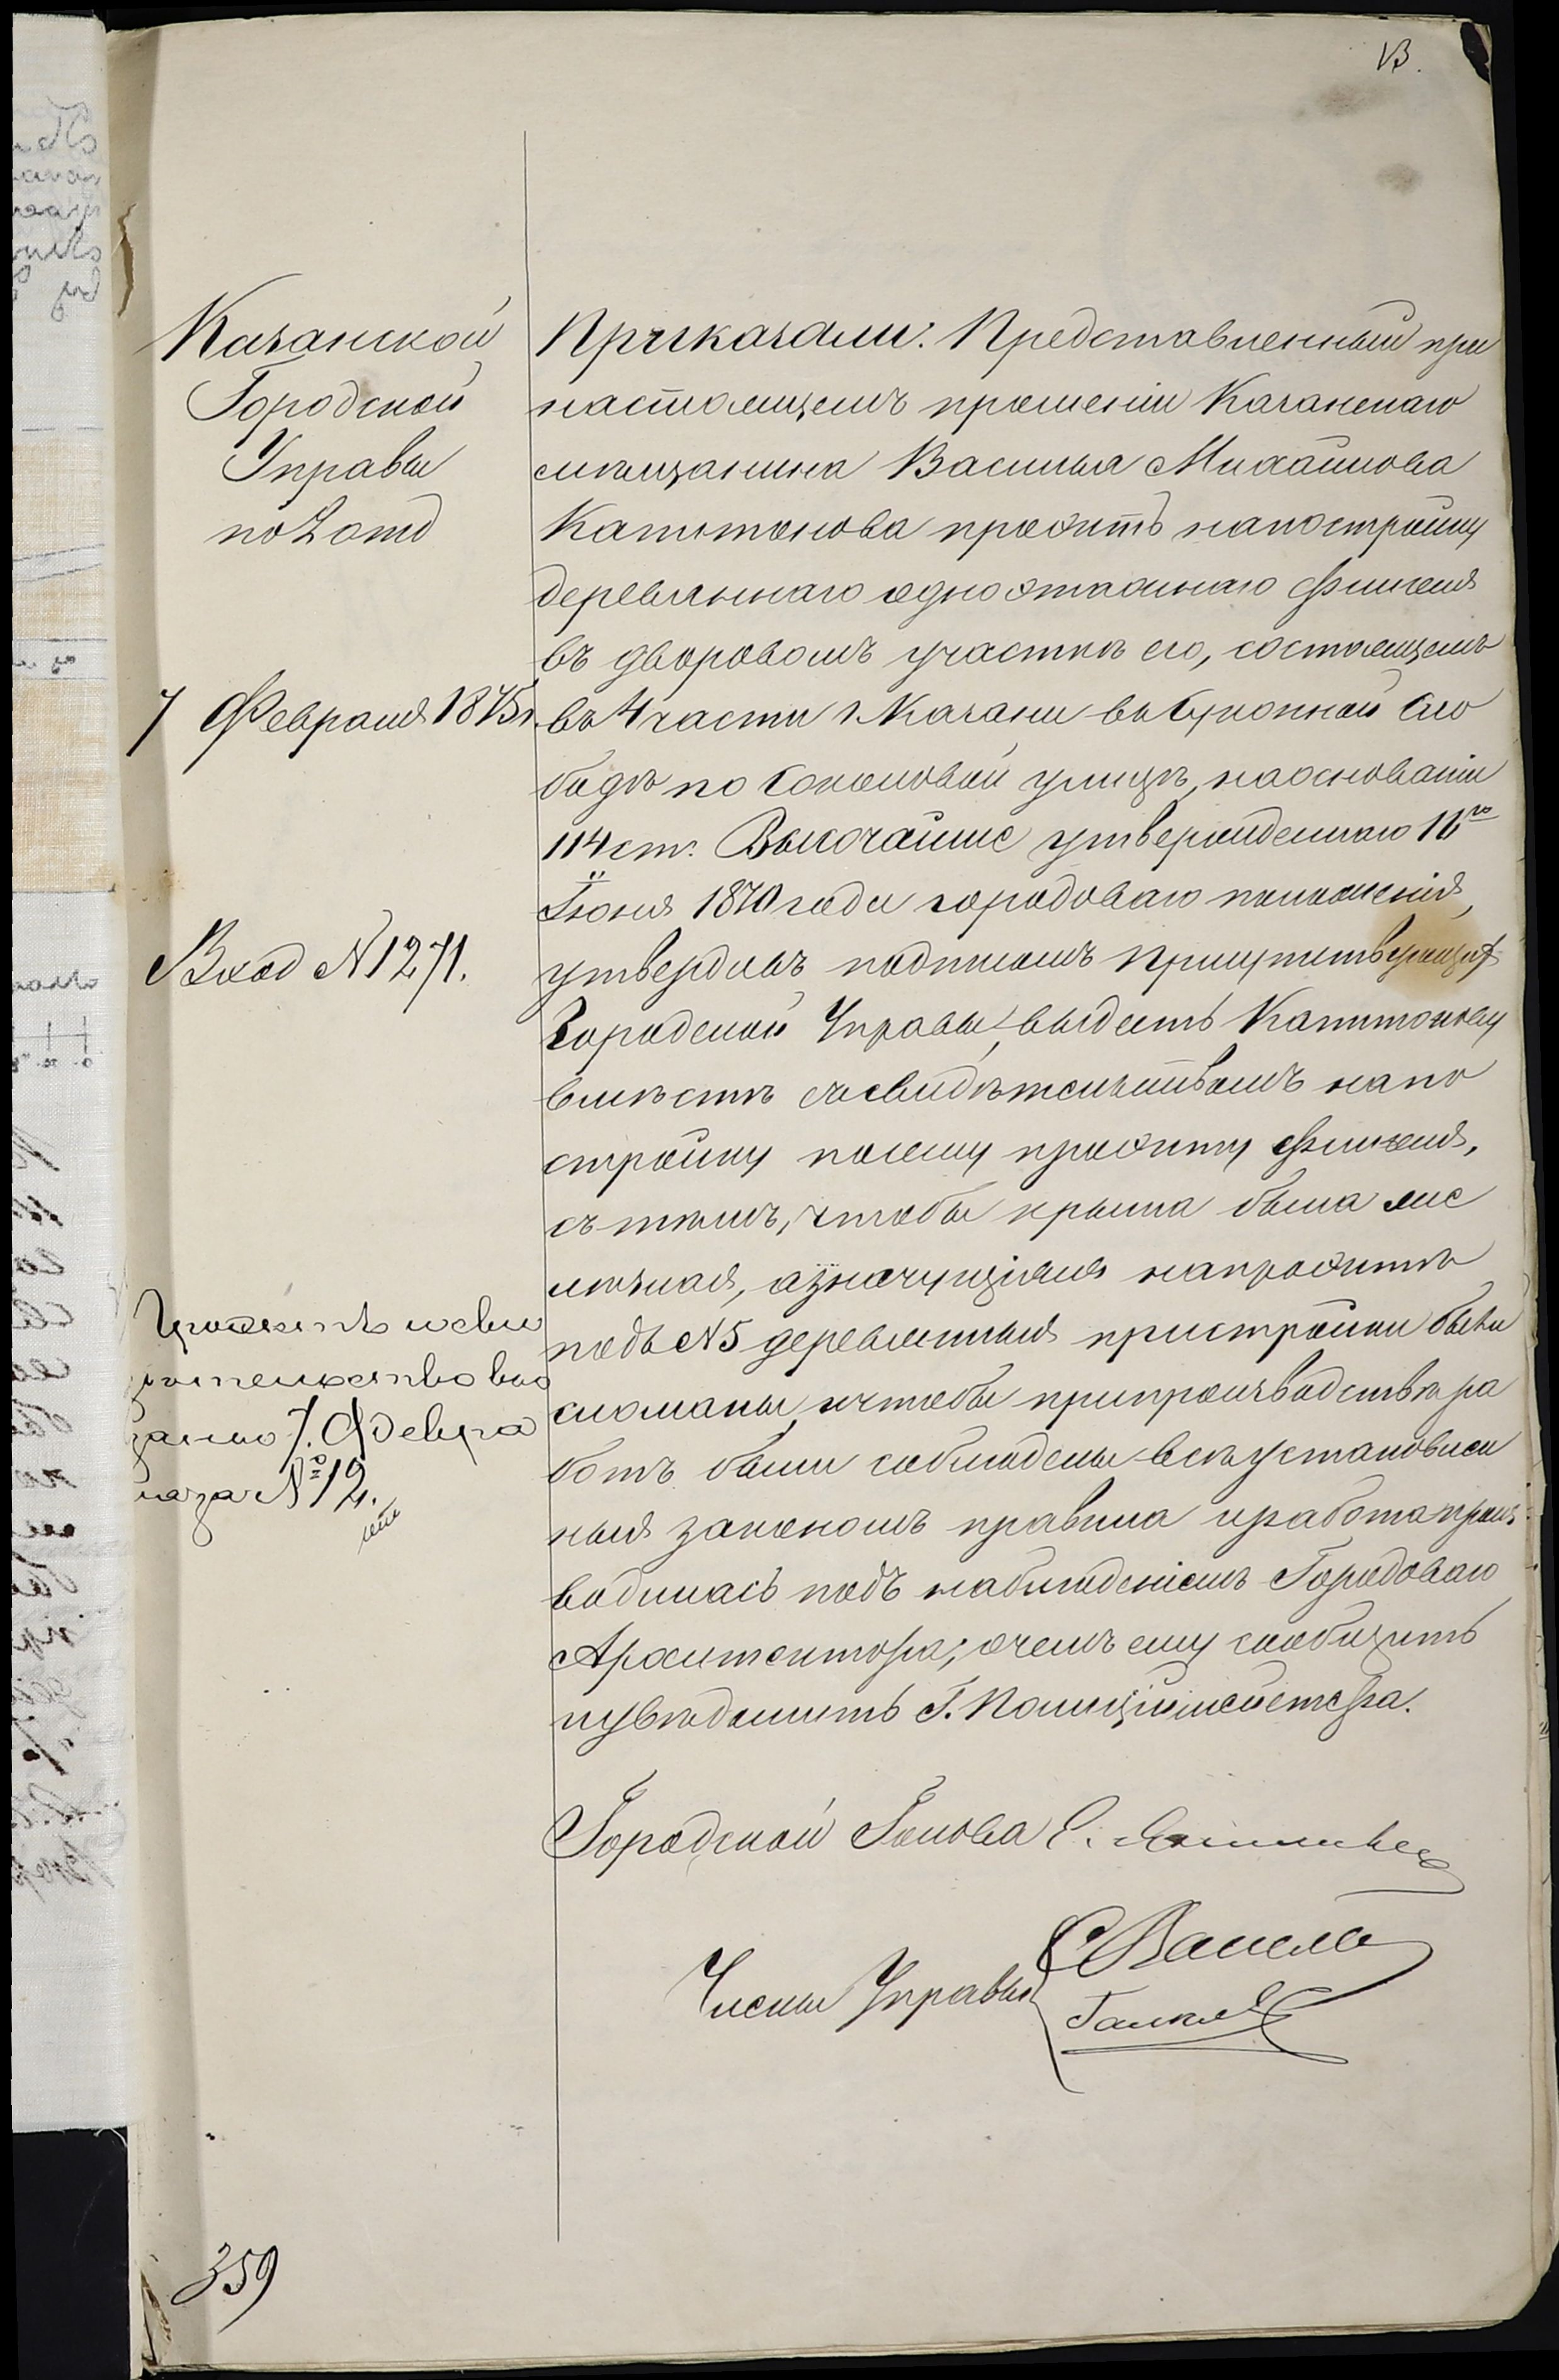 Казанской
Городской
Управы
по 2 отд
7 Февраля 1875 г.
Вход № 1271.
Проэктъ и сви
дѣтельство вы
даны 7. Февра
ля за № 12.
359
Приказали: Представленный при
настоящемъ прошеніи Казанскаго
мѣщанина Василья Михайлова
Капитонова проэктъ на постройку
деревяннаго одноэтажнаго флигеля
въ дворовомъ участкѣ его, состоящемъ
въ 4 части г. Казани въ Суконной Сло
бодѣ по улицѣ, на основаніи
114 ст. Высочайше утвержденнаго 16го
Іюня 1870 года городоваго положенія,
утвердивъ подписомъ Присутствующихъ
Городской Управы, выдать Капитонову
вмѣстѣ съ свидѣтельствомъ на по
стройку по сему проэкту флигеля,
съ тѣмъ, чтобы крыша была же
лѣзная, а значущіяся на проэктѣ
подъ № 5 деревянныя пристройки были
сломаны, и чтобы при производствѣ ра
ботъ были соблюдены всѣ установлен
ныя закономъ правила и работа произ
водилась подъ наблюденіемъ Городоваго
Архитектора; о чемъ ему сообщить
и увѣдомить Г. Полиціймейстера.
Городской Голова Е.
Члены Управы